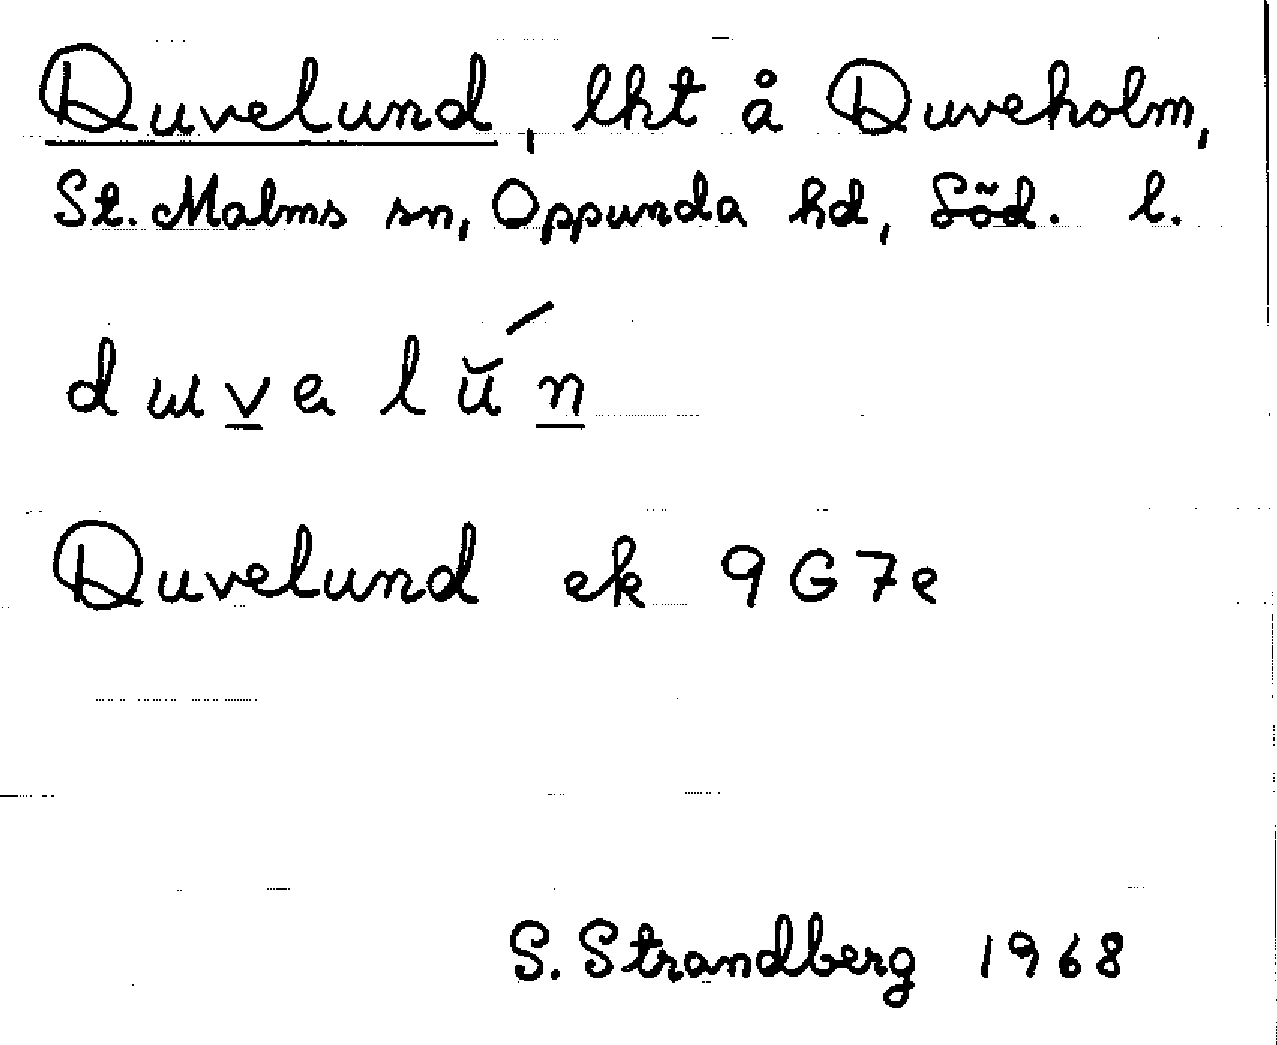 Duvelund, lht å Duveholm,
St. Malms sn, Oppunda hd, Söd. l.
duvelŭ́n
Duvelund ek 9G7e
S. Strandberg 1968